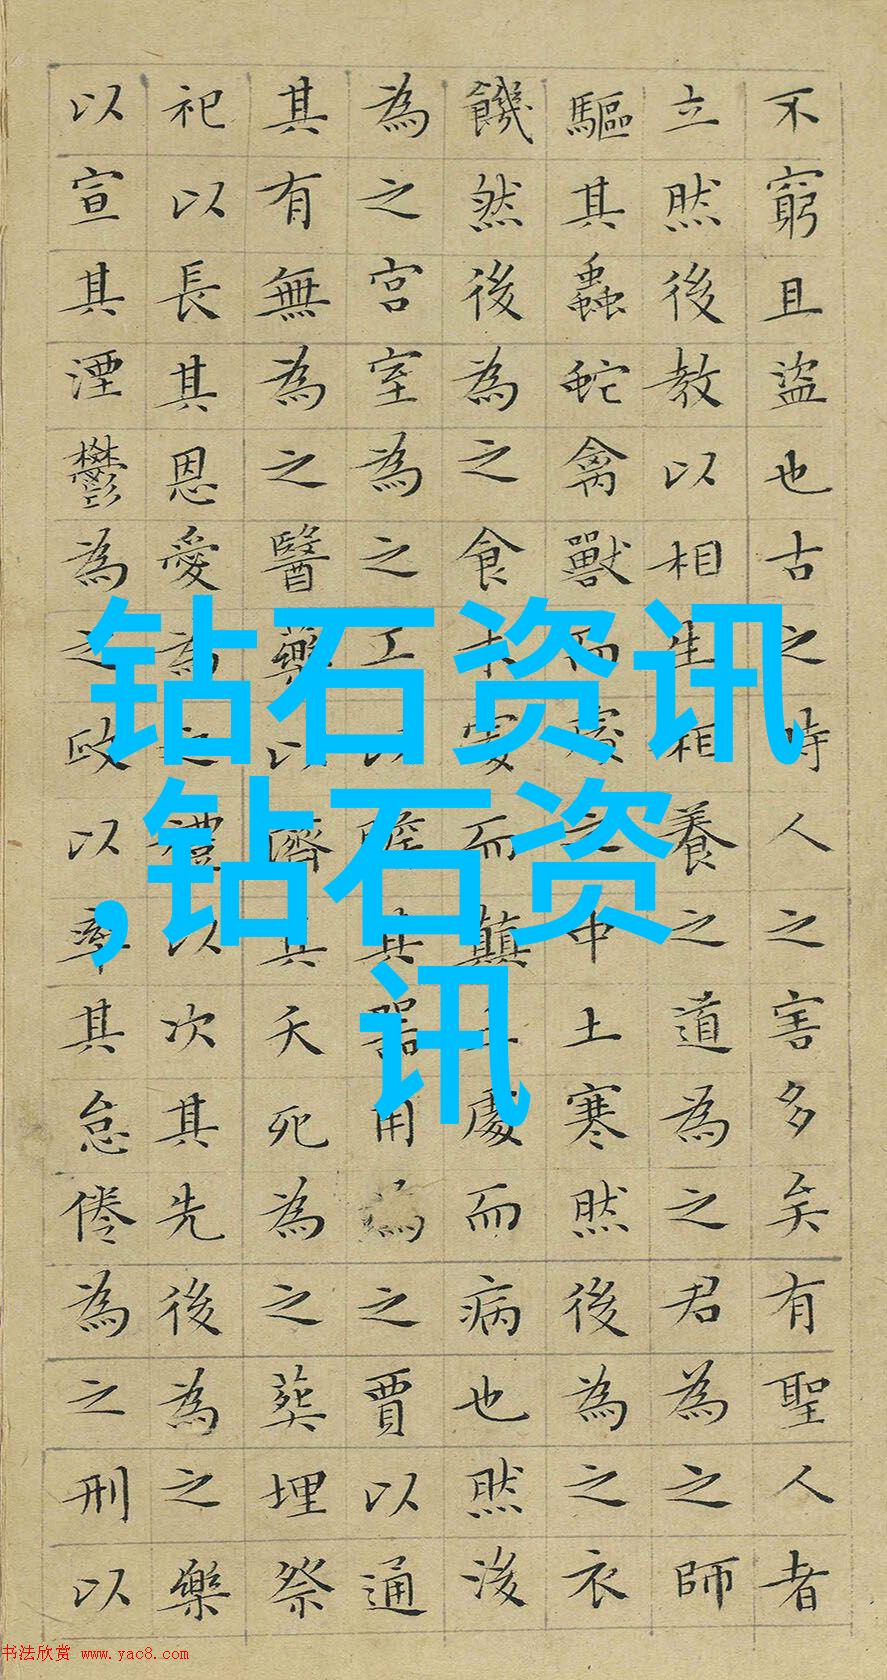 不窮且盜也古之時人之害多矣有聖人者
立然後教以相生相養之道為之君為之師
驅其蟲蛇禽獸而處之中土寒然後為之衣
饑然後為之食木處而顛土處而病也然後
為之宮室為之工以贍其器用為之賈以通
其有無為之醫藥以濟其夭死為之葬埋祭
祀以長其恩愛為之禮以次其先後為之樂
以宣其湮鬱為之政以率其怠倦為之刑以
钻石资讯
,钻石资
讯
书法欣赏 www.yac8.com